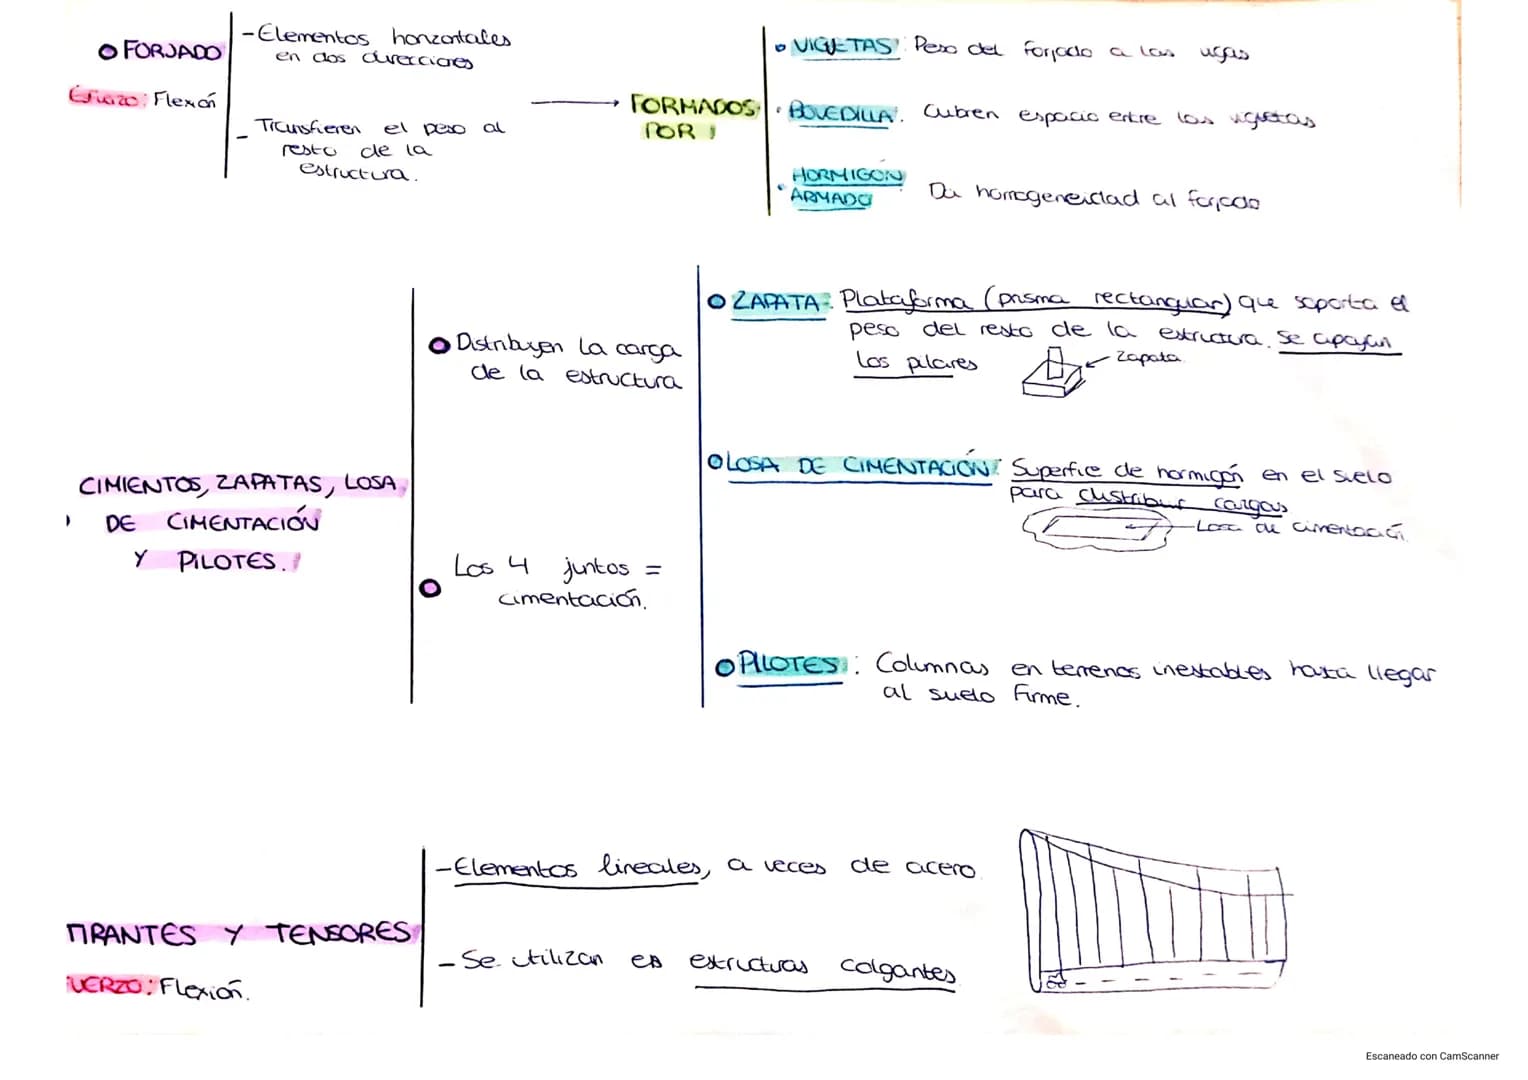 FORJADO
Esfuerzo: Flexión
-Elementos horizontales
en dos direcciones
- Transfieren el peso al
resto de la
estructura.
FORMADOS
POR:
VIGUETAS: Peso del forjado a las vigas
BOVEDILLA: Cubren espacio entre las viguetas
HORMIGÓN
ARMADO
Da homogeneidad al forjado
CIMIENTOS, ZAPATAS, LOSA
DE CIMENTACIÓN
Y PILOTES.
Distribuyen la carga
de la estructura
Los 4 juntos =
cimentación.
ZAPATA: Plataforma (prisma rectangular) que soporta el
peso del resto de la estructura. Se apoyan
los pilares
Zapata
LOSA DE CIMENTACIÓN: Superfice de hormigón en el suelo
para distribuir cargas
Losa de cimentación
PILOTES: Columnas en terrenos inestables hasta llegar
al suelo firme.
TIRANTES Y TENSORES
UERZO: Flexión.
-Elementos lineales, a veces de acero
- Se utilizan en estructuras colgantes
Escaneado con CamScanner